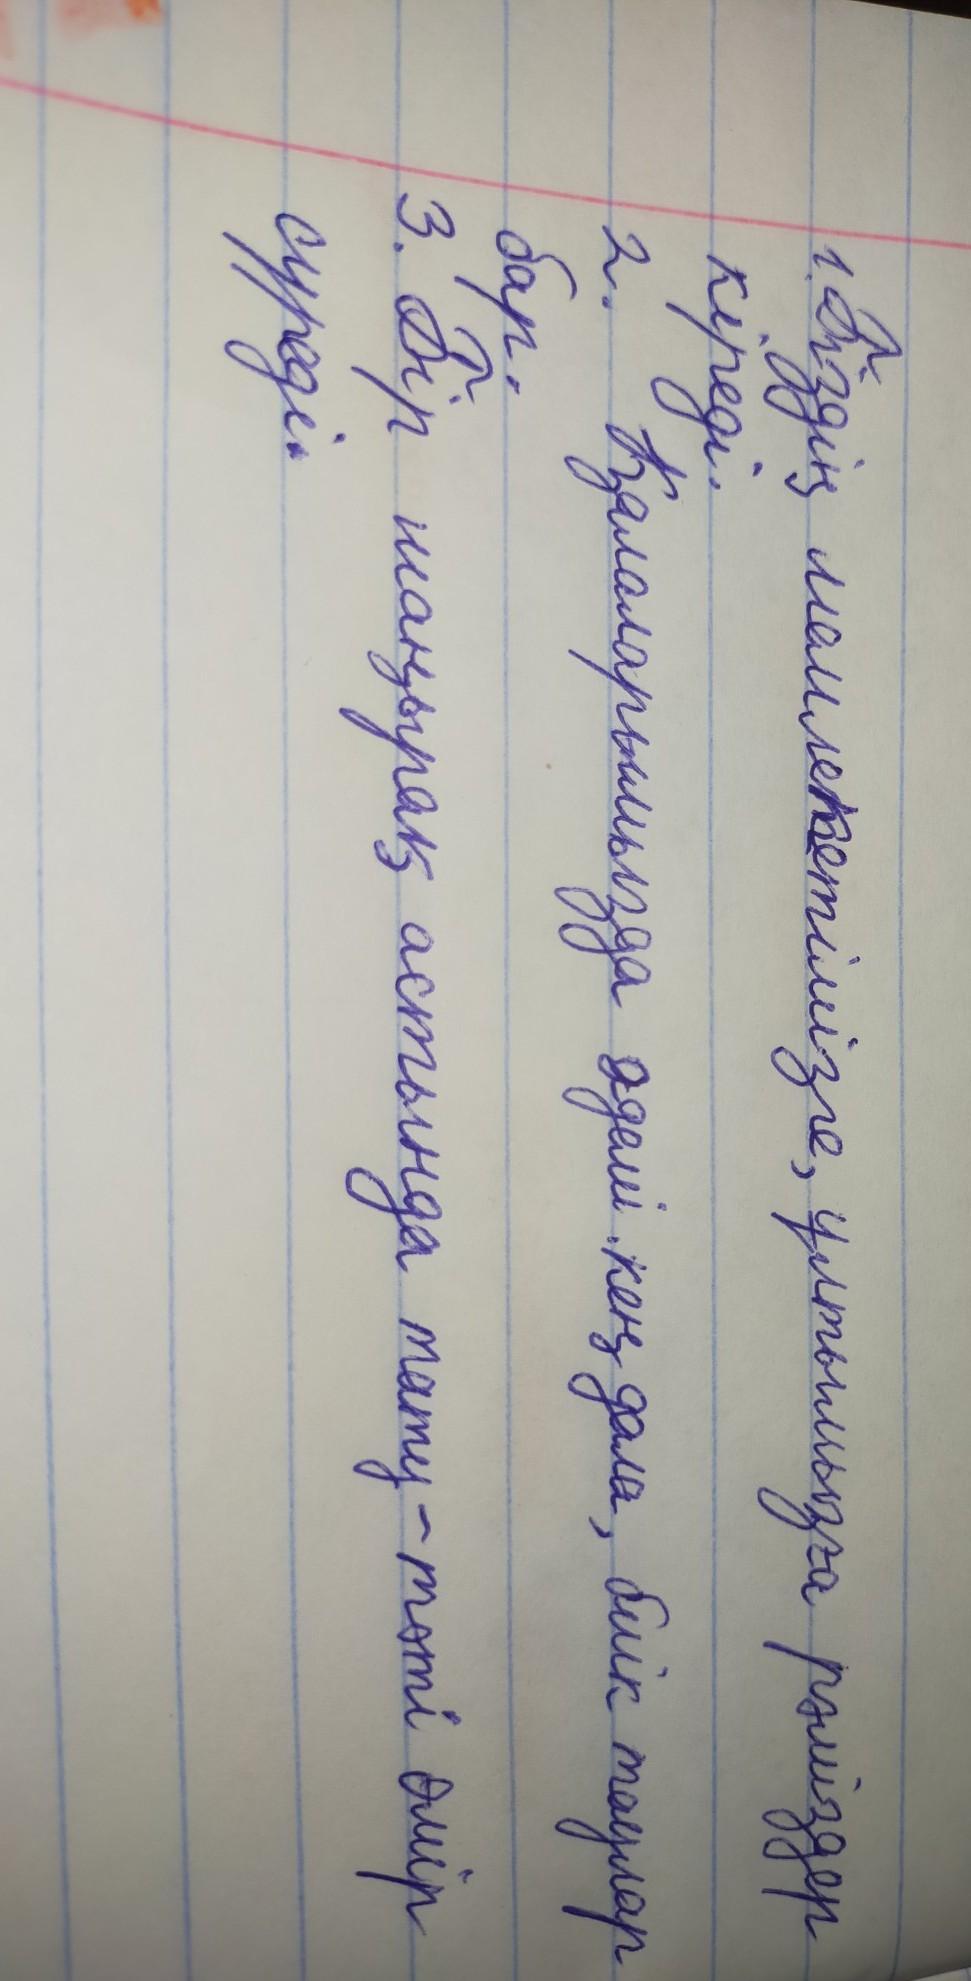 1. Біздің мамлекетімізге, ұлтымызға рәміздер
кіреді.
2. Қалаларымызда әдемі кең дала, биік таулар
бар.
3. Бір шаңырақ астында тату-тәтті өмір
сүреді.